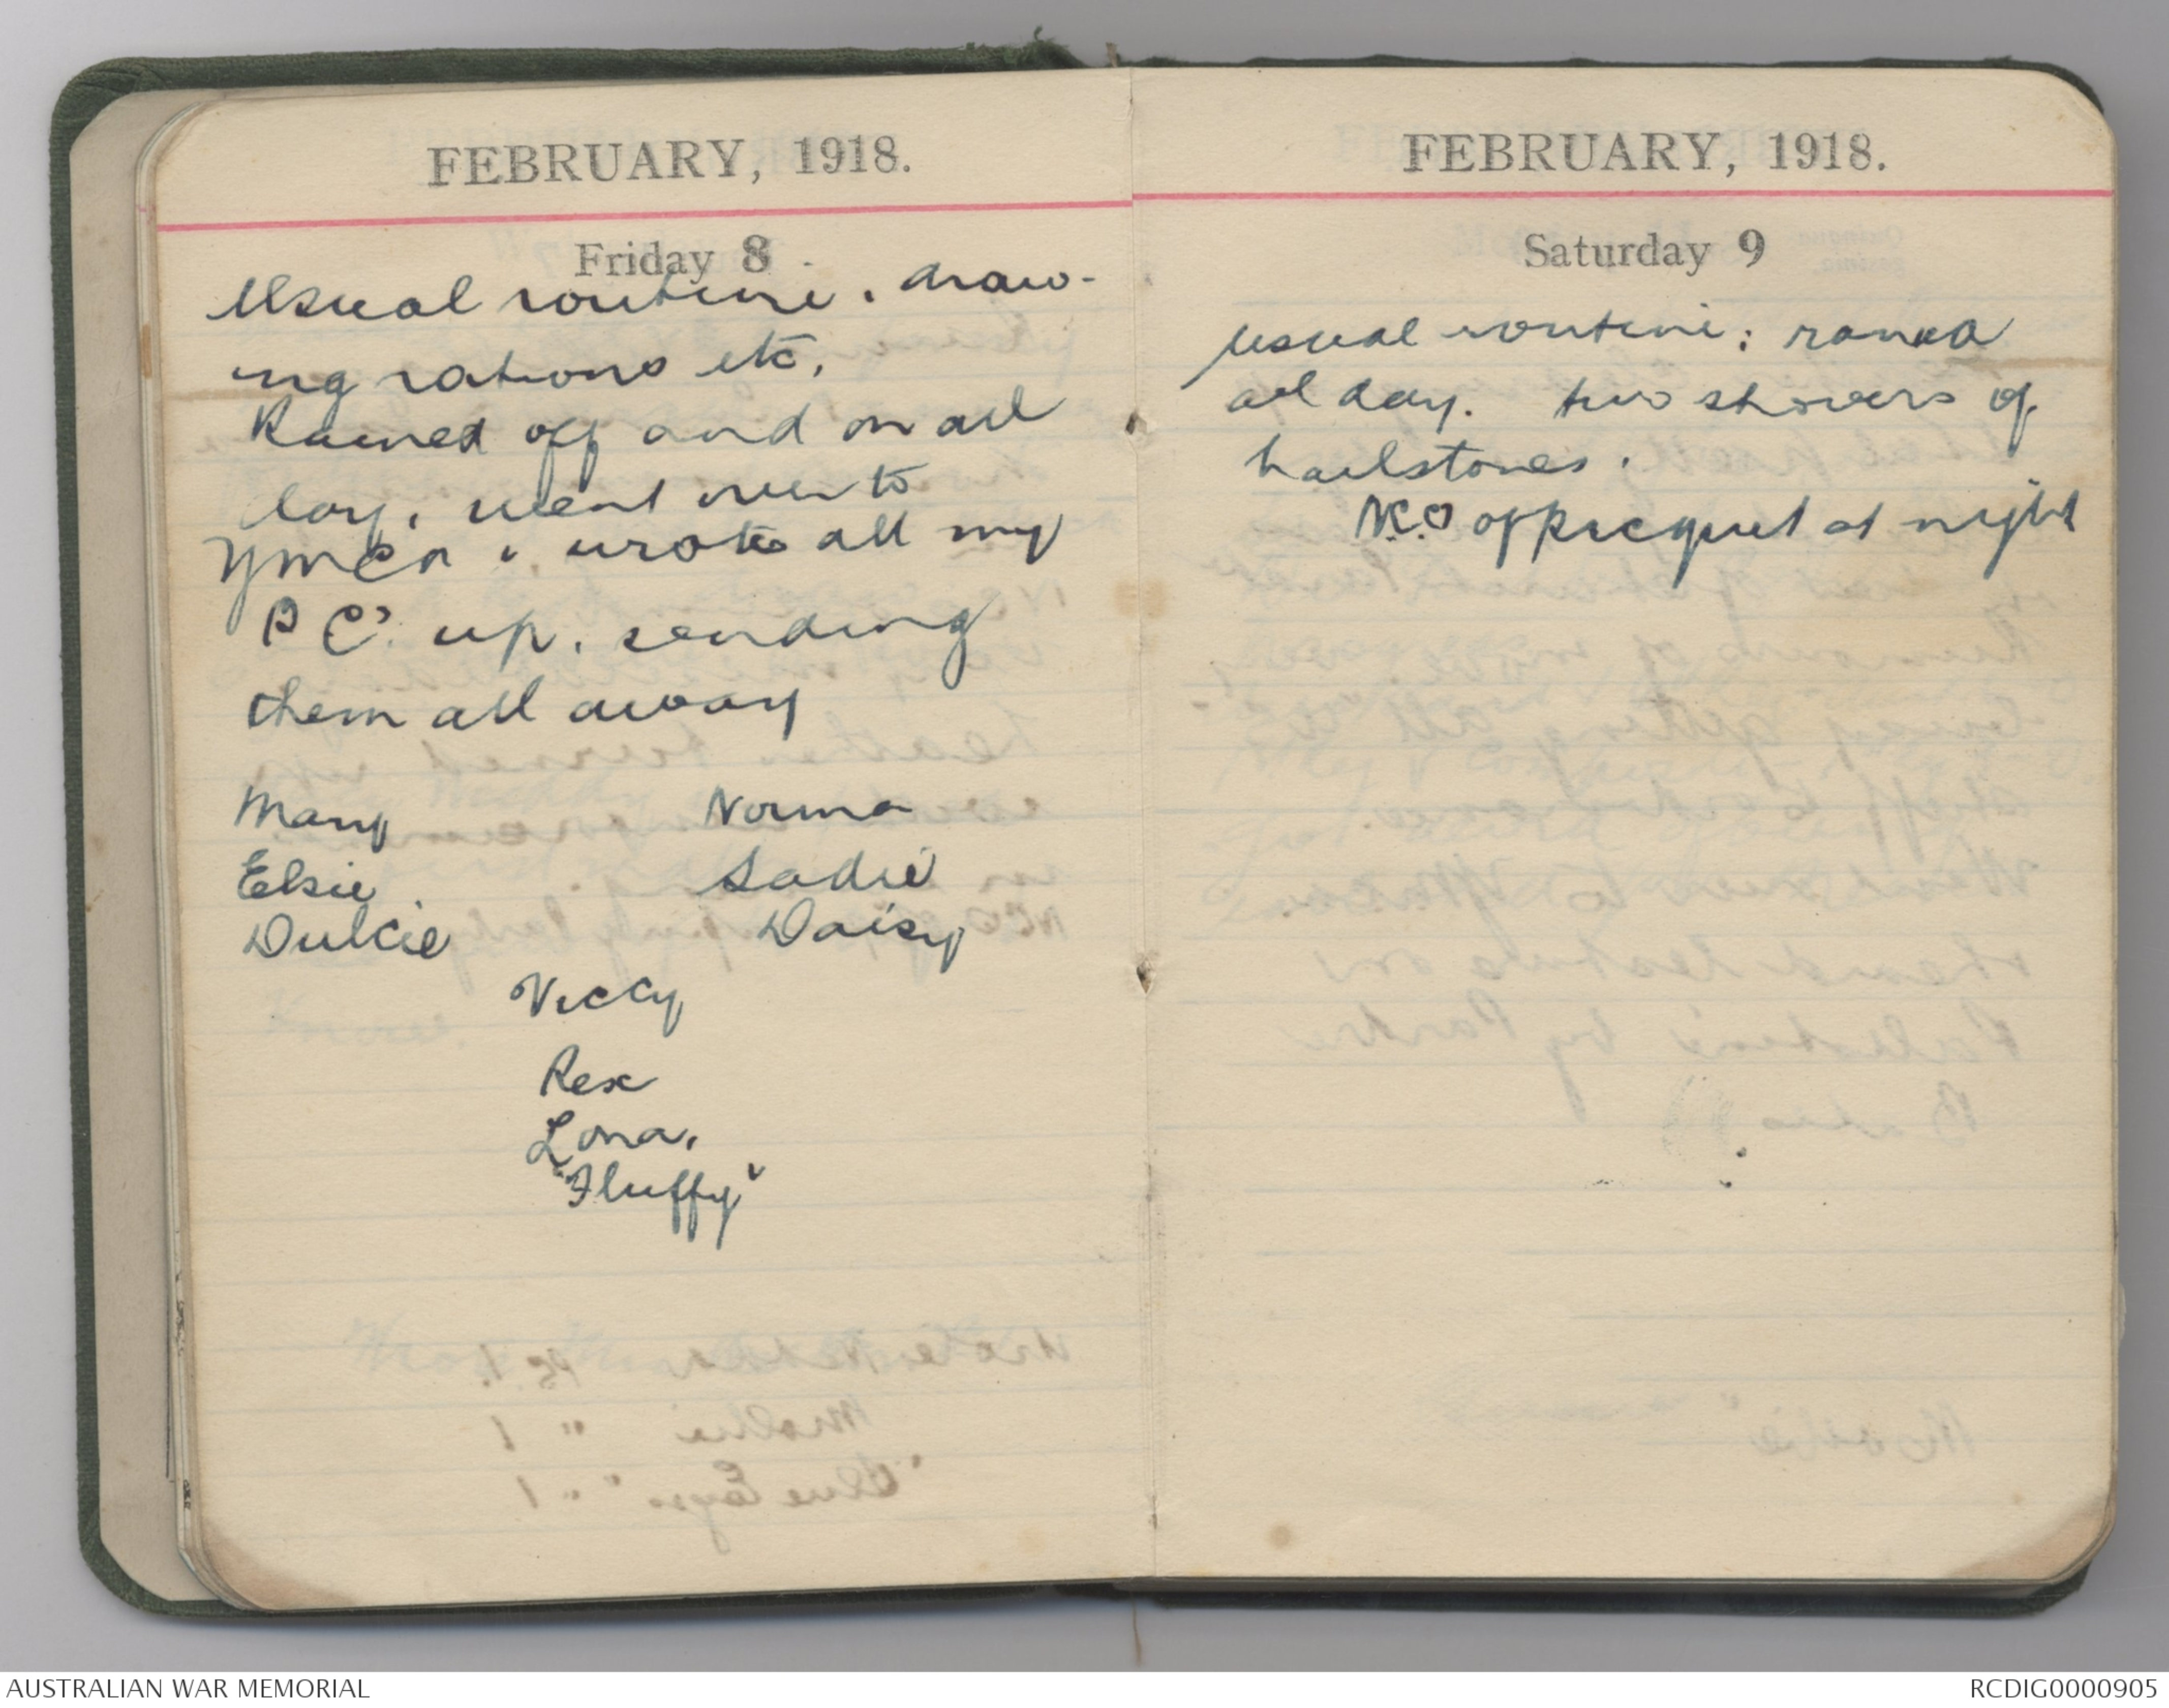 FEBRUARY, 1918.
Friday 8
Usual routine. draw-
ing rations etc.
Rained off and on all
day. went over to
YMCA & wrote all my
P C's up. sending
them all away
Mary Norma
Elsie Sadie
Dulcie Daisy
Vicky
Rex
Lona.
"Fluffy"
FEBRUARY, 1918.
Saturday 9
usual routine; rained
all day. two showers of
hailstones.
N.C.O of picquet at night
AUSTRALIAN WAR MEMORIAL
RCDIG0000905